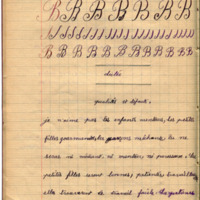 B B B B B B B B
B B B B B B B B B B B
dictée
qualités et défauts.
je n'aime pas les enfants menteurs, les petites
filles gourmandes, les garçons méchants. Je ne
serai ni méchant, ni menteur, ni paresseux. les
petites filles seront bonnes, patientes, travailleuses
elle trouveront de travail facile.